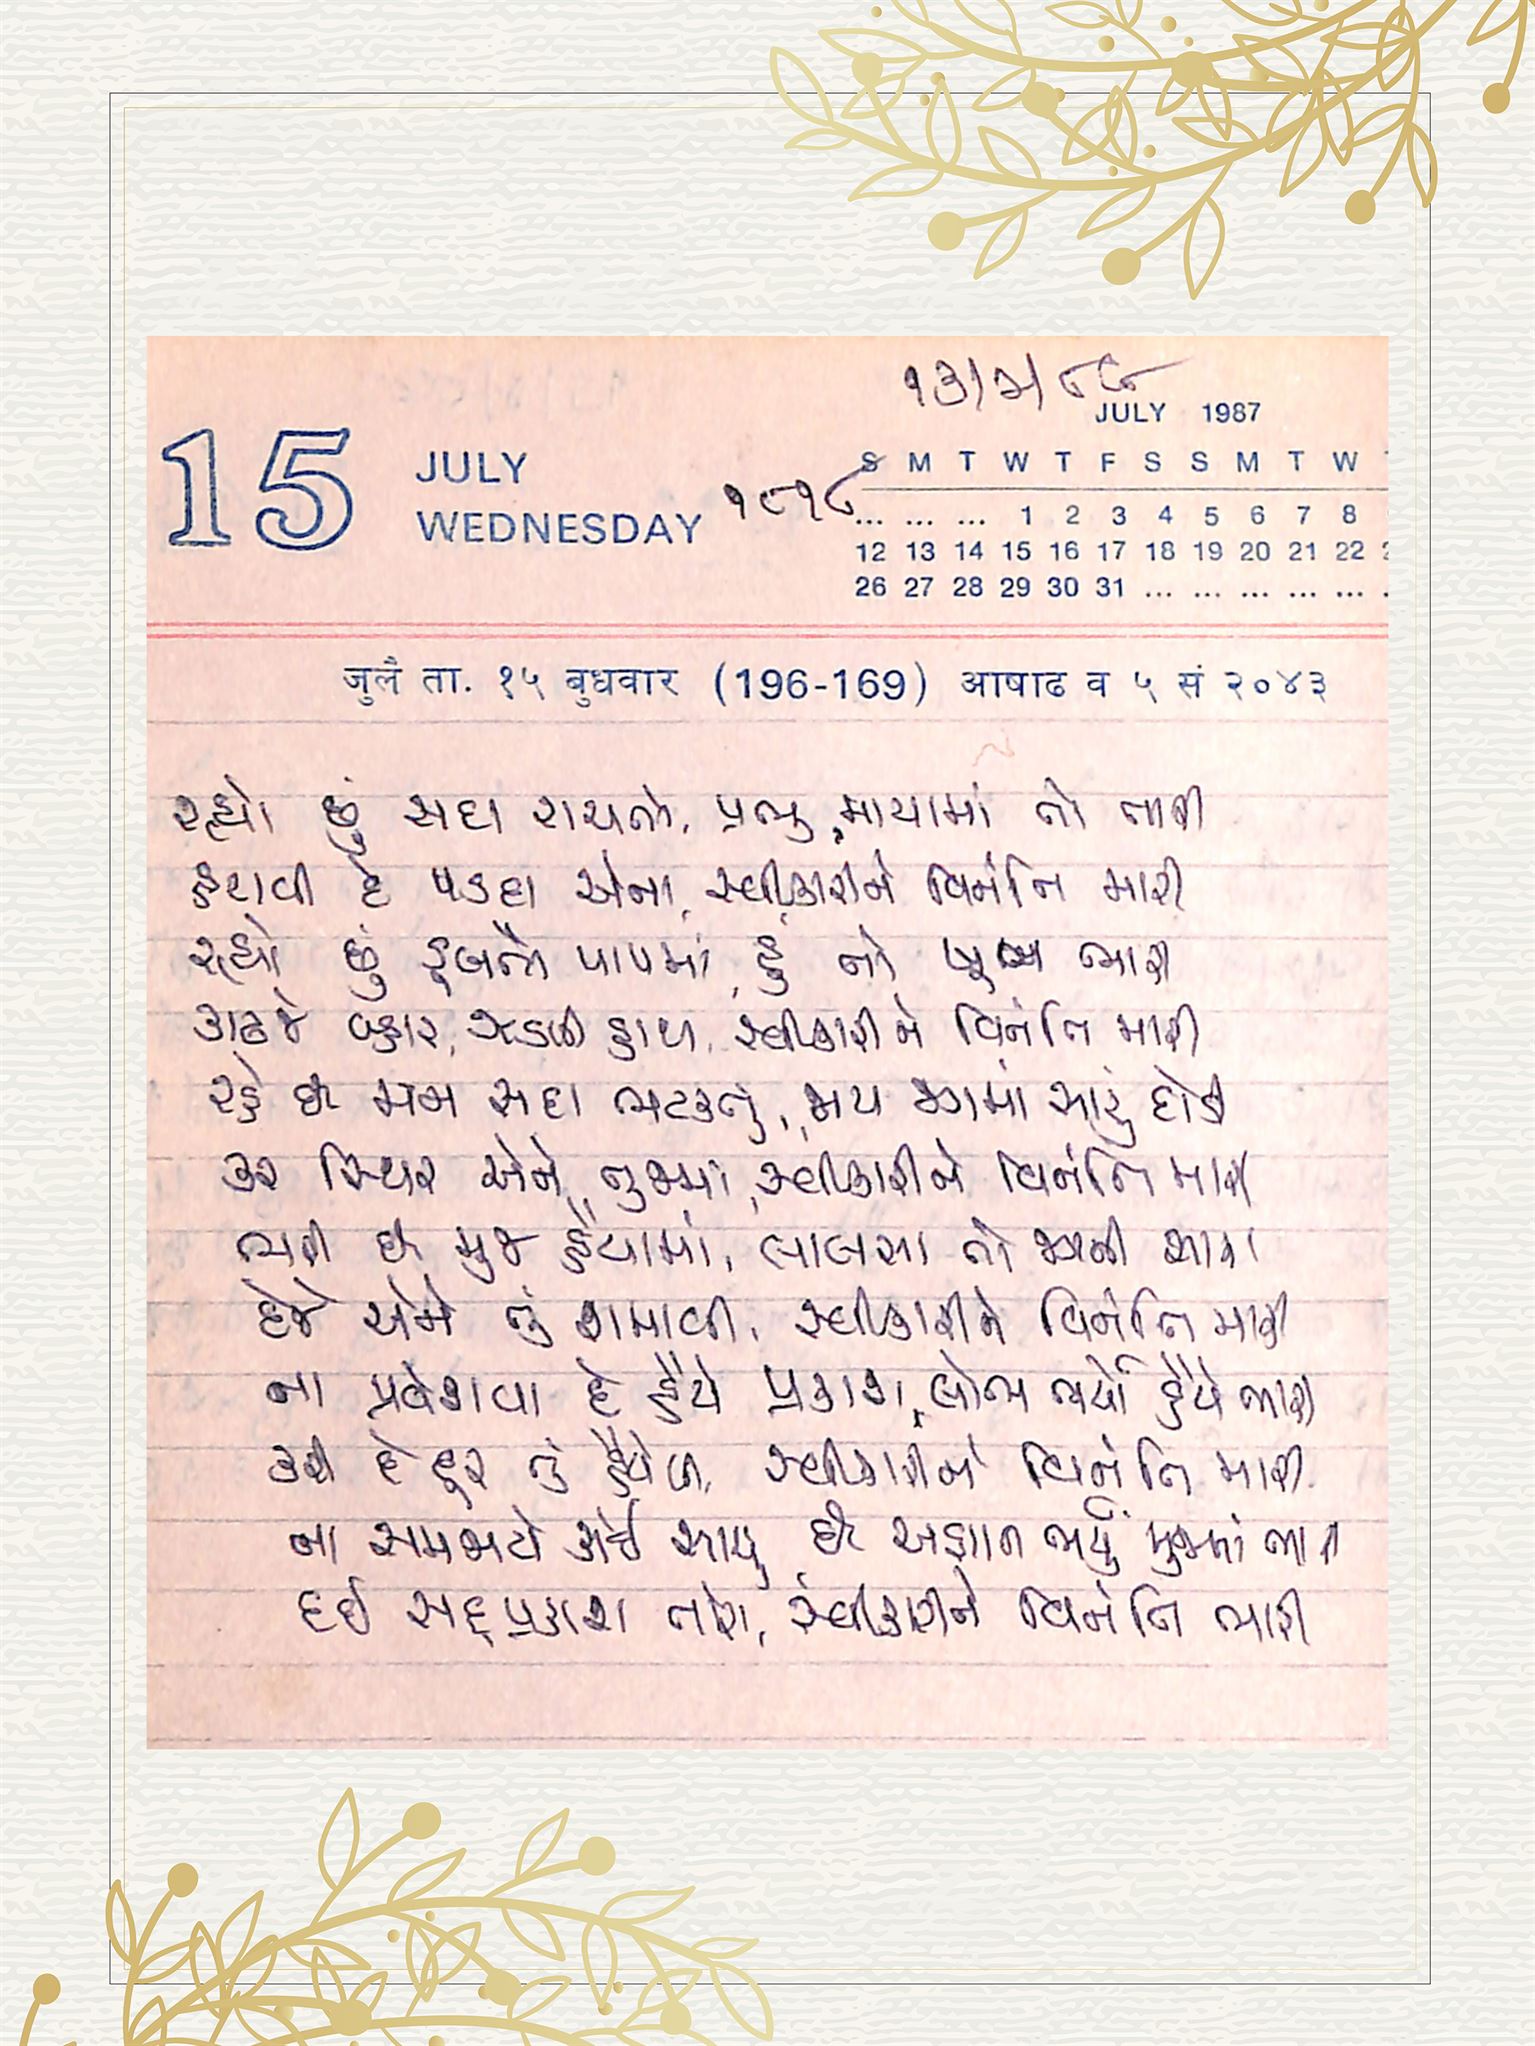 ૧૩/૭/૮૯
JULY 1987
15 JULY
WEDNESDAY ૧૯૧૯
S M T W T F S S M T W
... ... ... 1 2 3 4 5 6 7 8
12 13 14 15 16 17 18 19 20 21 22
26 27 28 29 30 31 ... ... ... ... ...
जुलै ता. १५ बुधवार (196-169) आषाढ व ५ सं २०४३
રહ્યો છું સદા રાચતો, પ્રભુ, માયામાં તો તારી
હટાવી દે પડદા એના, સ્વીકારીને વિનંતિ મારી
રહ્યો છું ડૂબતો પાપમાં, હું તો ખૂબ ભારી
કાઢજે બ્હાર, ઝડપી હાથ, સ્વીકારીને વિનંતિ મારી
રહે છે મન સદા ભટકતું, જાય જગમાં સારું દોડી
કર સ્થિર એને, તુજમાં, સ્વીકારીને વિનંતિ મારી
ભરી છે મુજ હૈયામાં, લાલસા તો જગની સારી
દેજે એને તું શમાવી, સ્વીકારીને વિનંતિ મારી
ના પ્રવેશવા દે હૈયે પ્રકાશ, લોભ ભર્યો હૈયે ભારી
કરી દે દૂર તું હૈયેથી, સ્વીકારીને વિનંતિ મારી
ના સમજાયે કાંઈ સાચું, છે અજ્ઞાન ભર્યું મુજમાં ભારી
દઈ સદ્દપ્રકાશ તારો, સ્વીકારીને વિનંતિ મારી